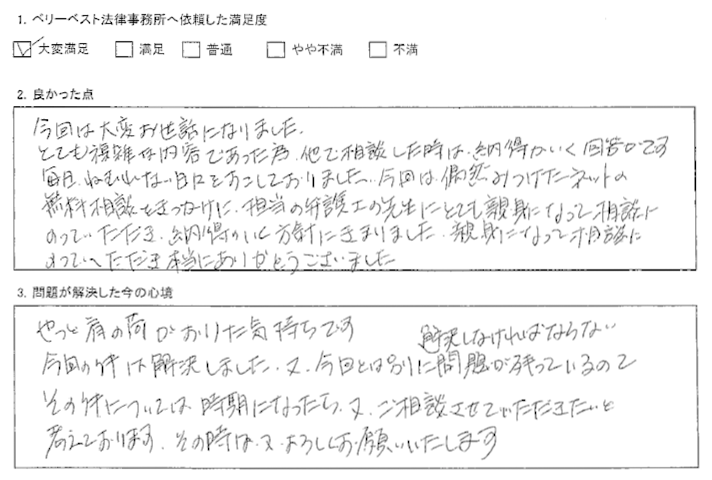 1. ベリーベスト法律事務所へ依頼した満足度
大変満足 満足 普通 やや不満 不満
2. 良かった点
今回は大変お世話になりました。
とても複雑な内容であった為、他で相談した時は、納得がいく回答がです
毎日、ねむれない日々をおこしておりました。今回は、偶然みつけたネットの
無料相談をきっかけに、担当の弁護士の先生にとても親身になって相談に
のっていただき、納得のいく方針にきまりました。親身になって相談に
のっていただき本当にありがとうございました
3. 問題が解決した今の心境
やっと肩の荷がおりた気持ちです
解決しなければならない
今回の件は解決しました。又、今回とは別に問題が残っているので
その件については、時期になったら、又、ご相談させていただきたいと
考えております。その時は、又、よろしくお願いいたします